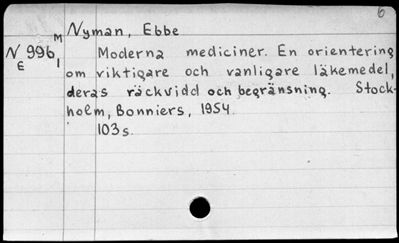 6
M Nyman, Ebbe
N 996 1 Moderna mediciner. En orientering
E om viktigare och vanligare läkemedel,
deras räckvidd och begränsning. Stock-
holm, Bonniers, 1954.
103 s.